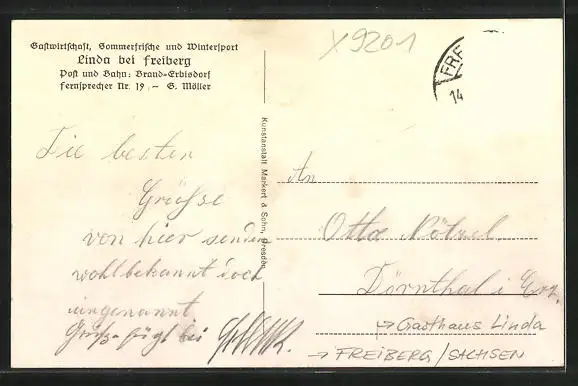 Gastwirtschaft, Sommerfrische und Wintersport
Linda bei Freiberg
Post und Bahn: Brand-Erbisdorf
Fernsprecher Nr. 19 – G. Möller
X9201
FRE
14
Kunstanstalt Markert & Sohn, Dresden
Die besten
Grüße
von hier senden
wohlbekannt doch
ungenannt
Gruß fügt bei
An
Otto Nötzel
Dörnthal i Erz.
→ Gasthaus Linda
→ FREIBERG/SACHSEN